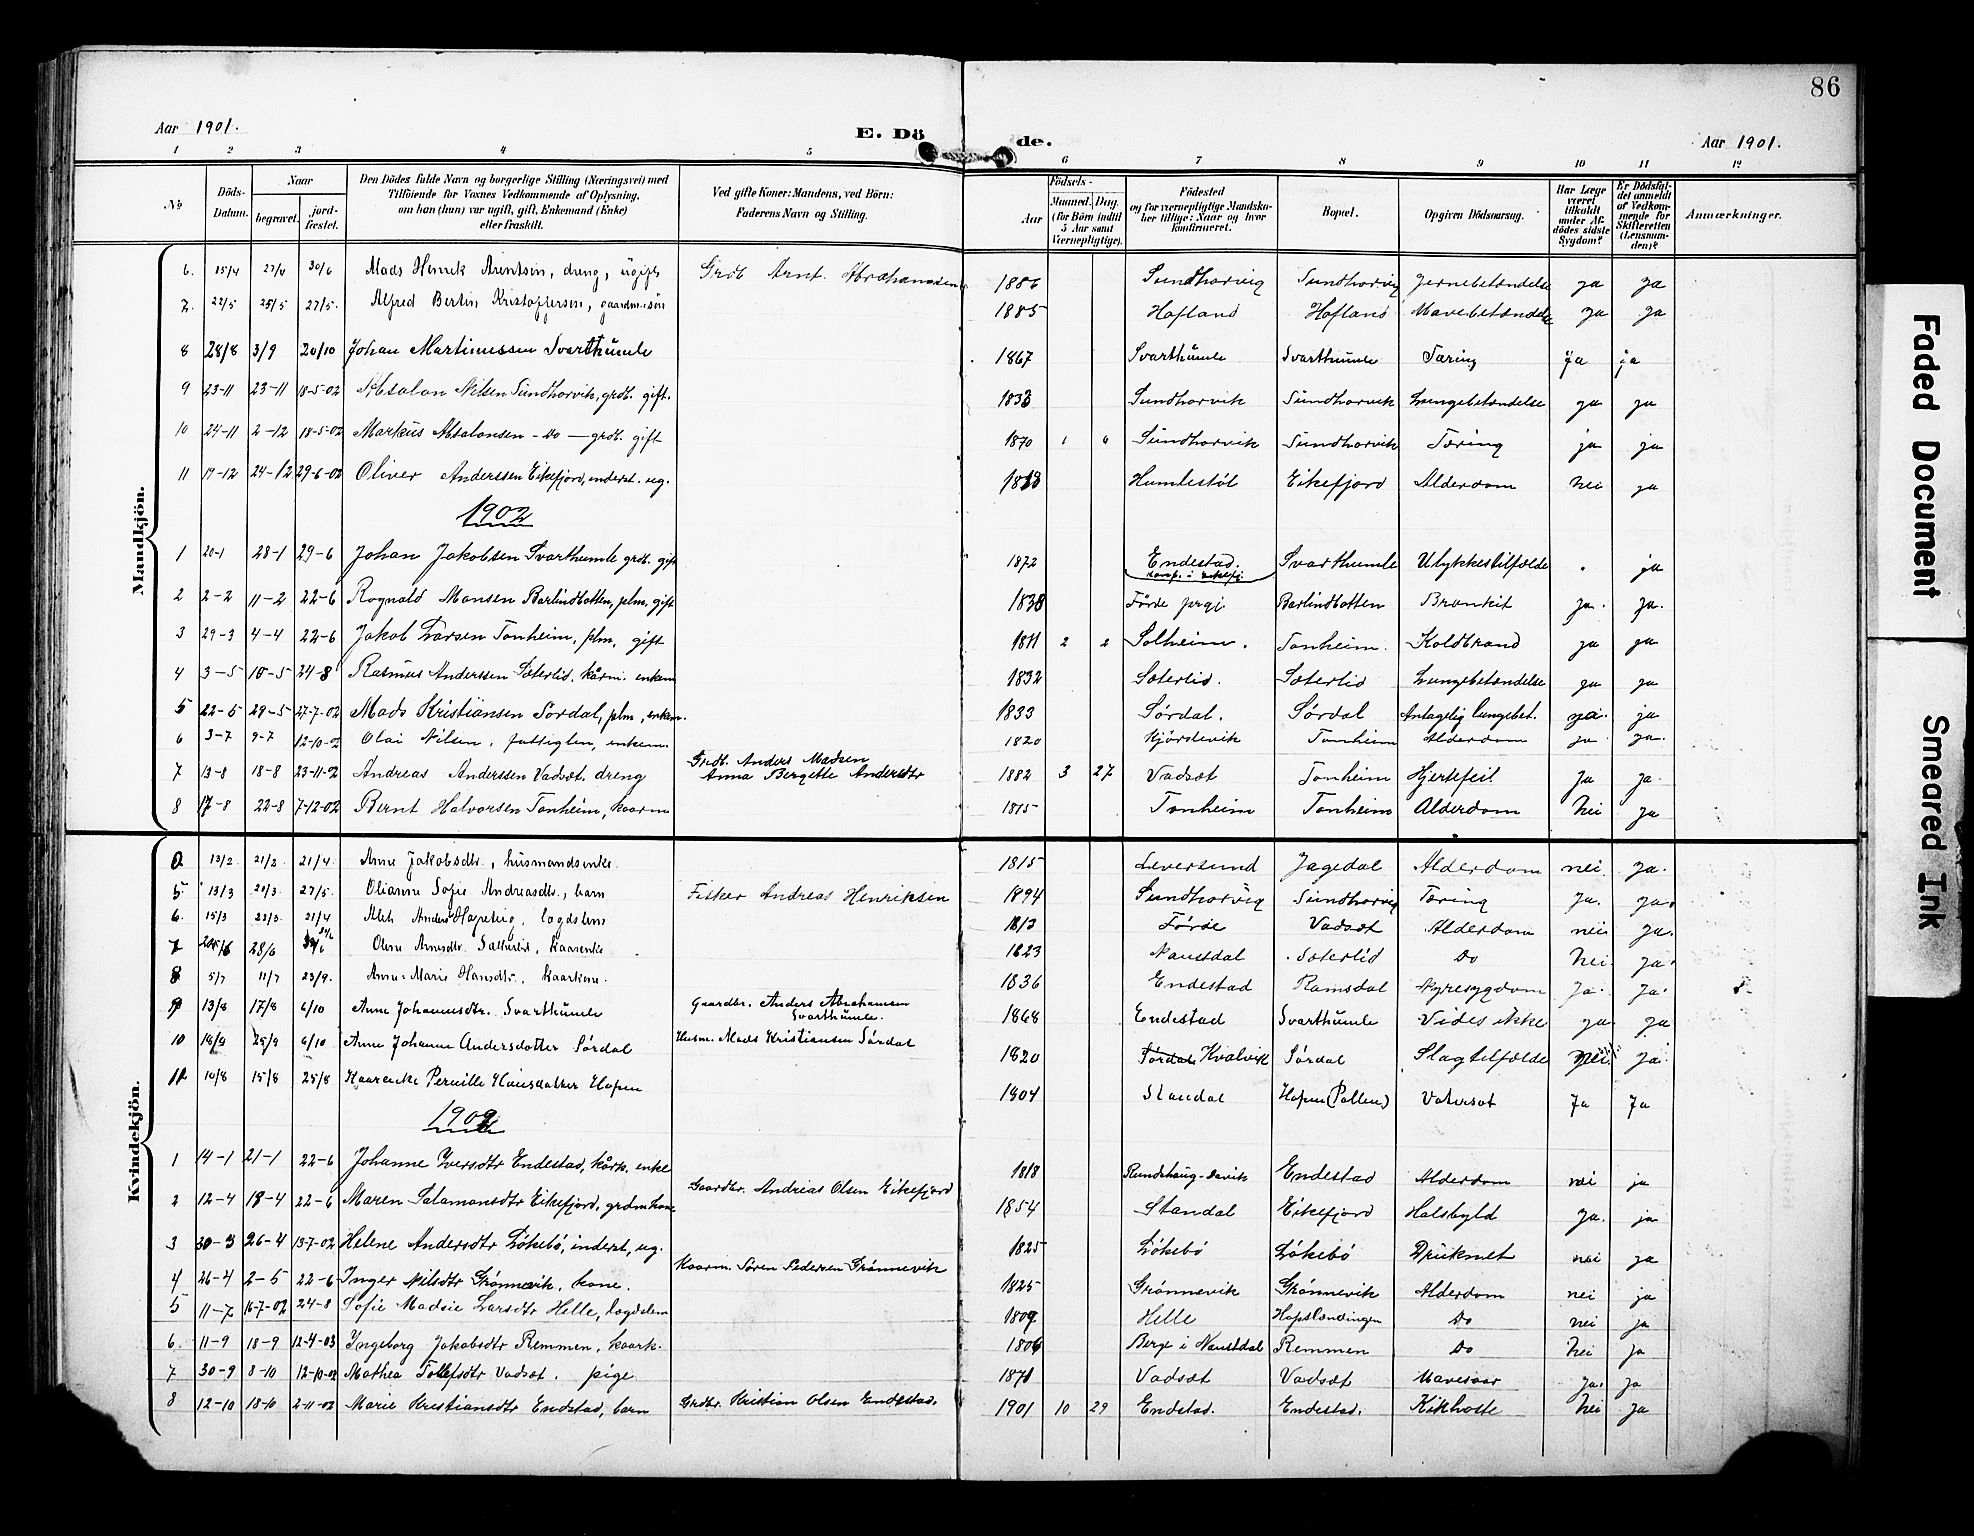 86
Aar 1901.
E. Döde.
Aar 1901.
1 2 3 4 5 6 7 8 9 10 11 12
No
Döds-Datum.
Naar
begravet.
jord-fæstet.
Den Dödes fulde Navn og borgerlige Stilling (Næringsvei) med Tilföiende for Voxnes Vedkommende af Oplysning, om han (hun) var ugift, gift, Enkemand (Enke) eller fraskilt.
Ved gifte Koner: Mandens, ved Börn: Faderens Navn og Stilling.
Födsels-
Aar
Maaned. Dag.
(for Börn indtil 5 Aar samt Værnepligtige).
Födested og for værnepligtige Mandskaber tillige: Naar og hvor konfirmeret.
Bopæl.
Opgiven Dödsaarsag.
Har Læge været tilkaldt under Afdödes sidste Sygdom?
Er Dödsfaldet anmeldt af Vedkommende for Skifteretten (Lensmanden)?
Anmærkninger.
Mandkjön.
6. 15/4 27/4 30/6 Mads Henrik Arentsen, dreng, ugift Grdb Arnt Abrahamsen 1886 Sundhorvig Sundhorvig Jernebetændelse ja ja
7. 22/5 25/5 27/5. Alfred Bertin Kristoffersen, gaardm. sön 1885 Hofland Hofland Mavebetændelse ja ja
8 28/8 3/9 20/10 Johan Martinussen Svarthumle 1867 Svarthumle Svarthumle Tæring ja ja
9 23-11 23-11 18-5-02 Absalon Nilsen Sundhorvik, grdb. gift. 1833 Sundhorvik Sundhorvik Lungebetændelse ja ja
10 24-11 2-12 18-5-02 Markus Absalonsen - Do - grdb. gift 1870 1 6 Sundhorvik Sundhorvik Tæring ja ja
11 17-12 24-12 29-6-02 Oliver Anderssen Eikefjord, inderst. ug. 1813 Humlestöl Eikefjord Alderdom nei ja
1902
1 20-1 28-1 29-6 Johan Jakobsen Svarthumle grdb. gift 1872 Endestad. konf. i Eikefj. Svarthumle Ulykkestilfælde . ja
2 2-2 11-2 22-6 Rognald Monsen Barlindbotten, plm, gift 1838 Förde prgj Barlindbotten Bronkit ja. ja.
3 29-3 4-4 22-6 Jakob Larsen Tonheim, plm, gift 1811 2 2 Solheim. Tonheim. Koldbrand ja ja
4 3-5 10-5 24-8 Rasmus Anderssen Sæterlid. kårm. enkem 1832 Sæterlid. Sæterlid Lungebetændelse ja ja
5 22-5 29-5 27-7-02 Mads Kristiansen Sördal, plm, enkem. 1833 Sördal. Sördal Antagelig lungebet. nei. ja
6 3-7 9-7 12-10-02 Olai Nilsen, fattiglem, enkem. 1820 Kjördevik Tonheim Alderdom ja ja.
7 13-8 18-8 23-11-02 Andreas Anderssen Vadsæt. dreng Grdb. Anders Madsen Anna Bergette Andersdtr 1882 3 27 Vadsæt Tonheim Hjertefeil ja ja
8 17-8 22-8 7-12-02 Bernt Halvorsen Tonheim, kaarm 1815 Tonheim Tonheim Alderdom Nei ja
Kvindekjön.
13/2 21/2 21/4 Anne Jakobsdtr., husmandsenke. 1815 Leversund Jagedal Alderdom nei ja.
5. 13/3 20/3 27/5. Olianna Sofie Andreasdtr., barn Fisker Andreas Henriksen 1894 Sundhorvig Sundhorvig Tæring ja. ja.
6. 15/3 22/3. 21/4 1813 Förde Vadsæt Alderdom nei ja.
7 28/6 kaarenke 1823 Naustdal Sæterlid Do Nei. ja.
8 5/7 11/7 23/9. Anne Marie Hansdtr., kaarkone. 1836 Endestad Ramsdal Nyresygdom Ja. Ja.
9 13/8 17/8 6/10 Anne Johannesdtr. Svarthumle Gaardbr. Anders Abrahamsen Svarthumle. 1868 Endestad Svarthumle Vides ikke ja. ja
10 18/9 25/9 6/10 Anne Johanne Andersdotter Sördal Husm. Mads Kristiansen Sördal 1820 Sördal Kvalvik Sördal Slagtilfælde nei ja
11 10/8 15/8 25/8 Kaarenke Pernille Hansdatter Hopen 1804 Standal Hopen (Pollen) Vatersot Ja Ja
1902
1 14-1 21-1 22-6 Johanne Iversdtr Endestad, kårk. enke 1818 Rundehaug-Davik Endestad Alderdom nei ja
2 12-4 18-4 22-6 Maren Salamonsdtr Eikefjord, grdmkone Gaardbr. Andreas Olsen Eikefjord 1854 Standal Eikefjord Halsbyld ja. ja
3 30-3 26-4 13-7-02 Helene Andersdtr Lökebö, inderst, ug. 1825 Lökebö Lökebö Druknet nei ja
4 26-4 2-5 22-6 Inger Nilsdtr Grönnevik, kone. Kaarm. Sören Pedersen Grönnevik 1825 Grönnevik Grönnevik Alderdom nei ja
5 11-7 16-7-02 24-8 Sofie Madsie Larsdtr Helle, logdslem 1809 Helle Hopslandingen Do nei ja
6. 11-9 18-9 12-4-03 Ingeborg Jakobsdtr Remmen, kaark. 1806 Berge i Naustdal Remmen Do Nei ja
7 30-9 8-10 12-10-02 Mathea Tollefsdtr Vadsæt. pige 1871 Vadsæt Vadsæt Mavesaar ja. ja
8 12-10 18-10 2-11-02 Marie Kristiansdtr Endstad, barn Grdbr. Kristian Olsen Endestad. 1901 10 29 Endstad. Endestad. Kikhoste Nei ja
Faded Document
Smeared Ink